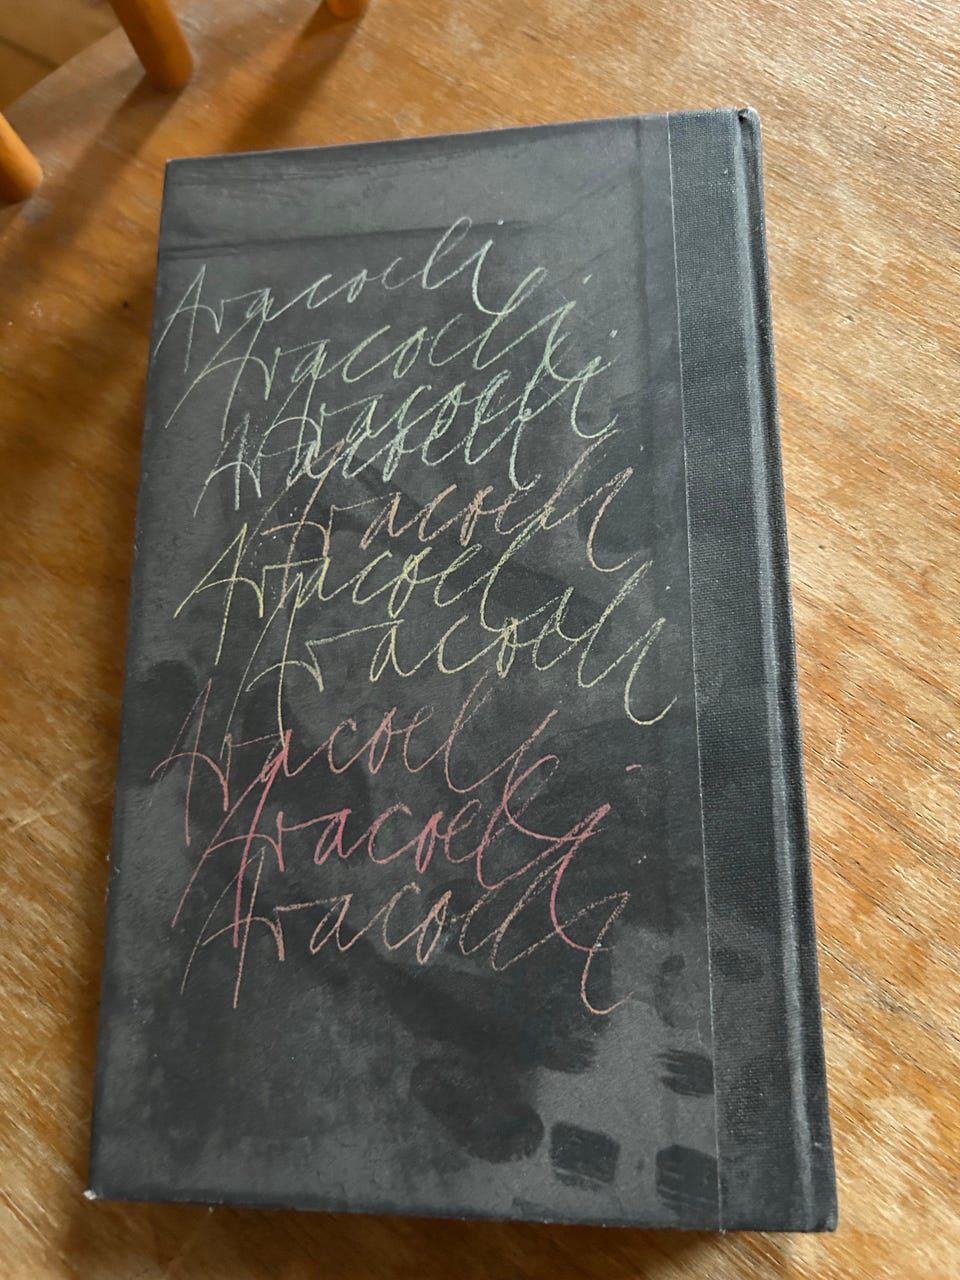 Aracoeli
Aracoeli
Aracoeli
Aracoeli
Aracoeli
Aracoeli
Aracoeli
Aracoeli
Aracoeli
Aracoeli